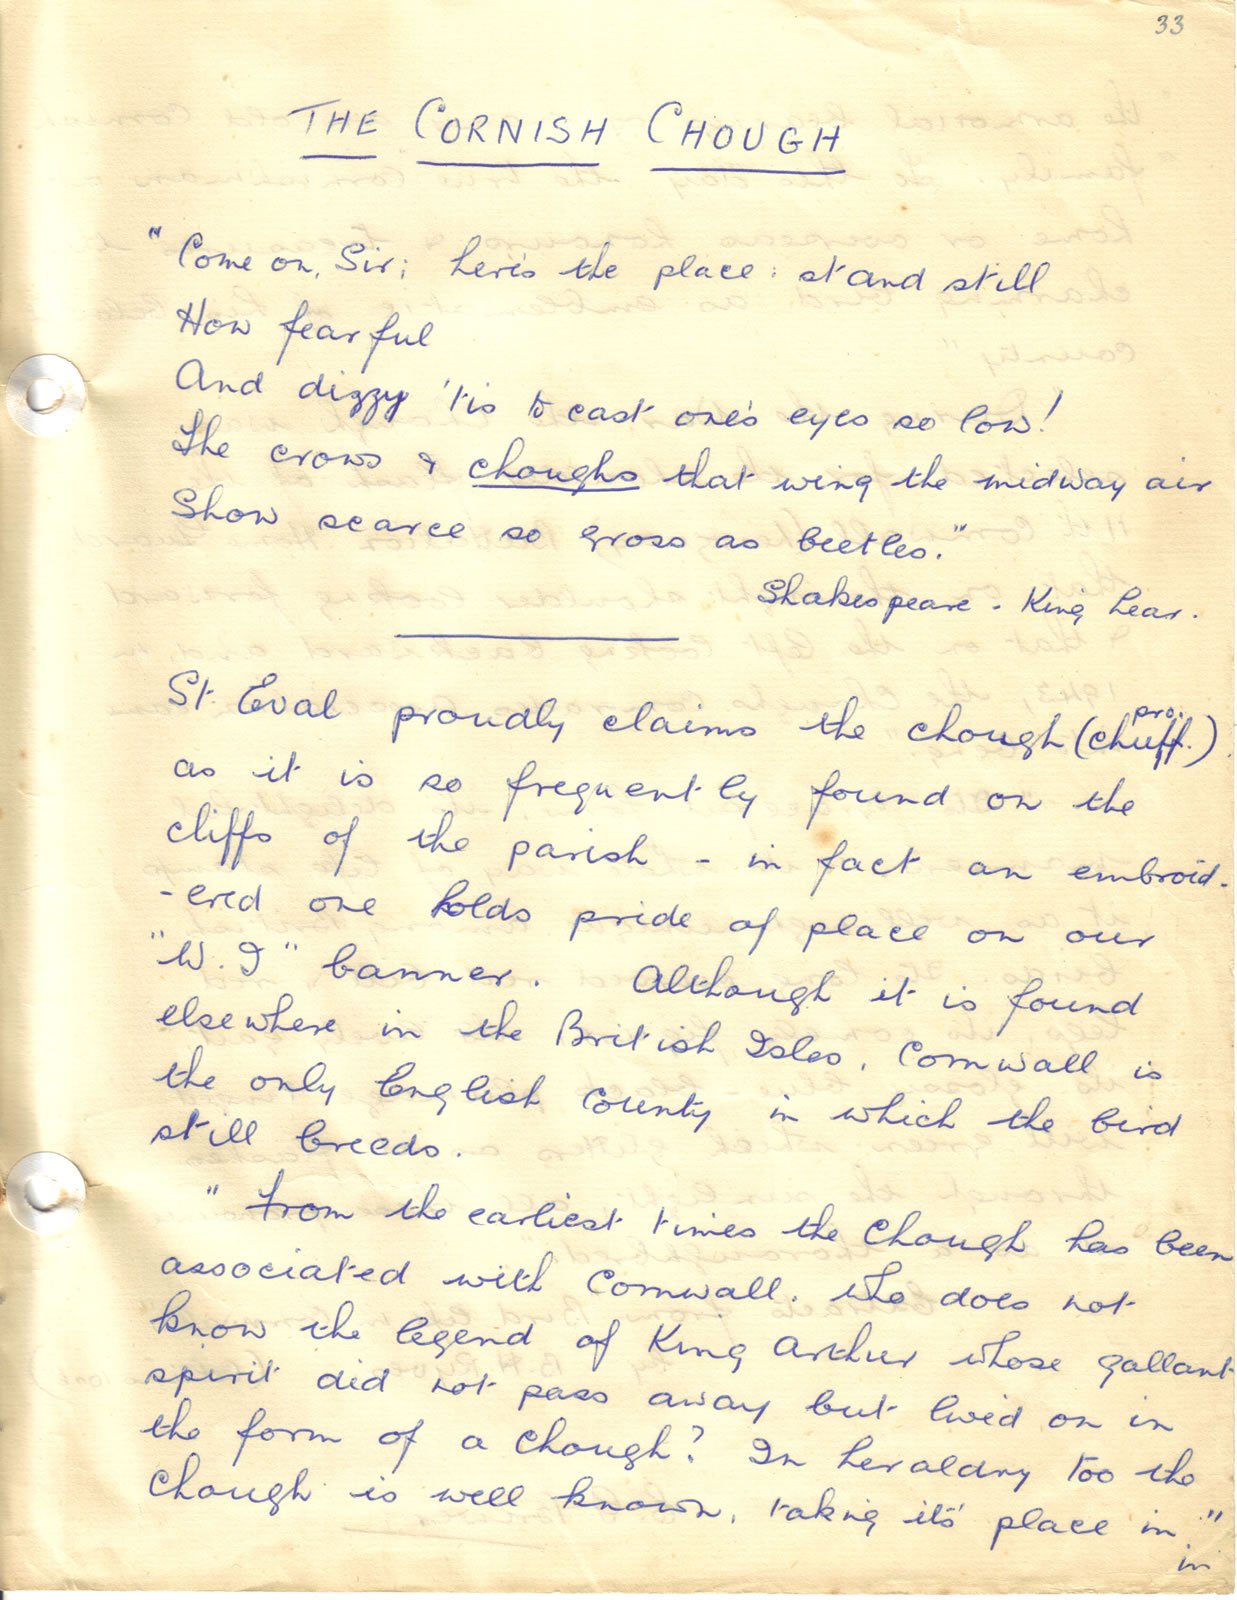 33
THE CORNISH CHOUGH
"Come on, Sir; here's the place: stand still
How fearful
And dizzy 'tis to cast one's eyes so low!
The crows & choughs that wing the midway air
Show scarce so gross as beetles."
Shakespeare - King Lear.
St. Eval proudly claims the chough (pro. chuff.)
as it is so frequently found on the
cliffs of the parish - in fact an embroid-
-ered one holds pride of place on our
"W.I" banner. Although it is found
elsewhere in the British Isles, Cornwall is
the only English County in which the bird
still breeds.
"From the earliest times the Chough has been
associated with Cornwall. Who does not
know the legend of King Arthur whose gallant
spirit did not pass away but lived on in
the form of a Chough? In heraldry too the
Chough is well known, taking it's place in"
in